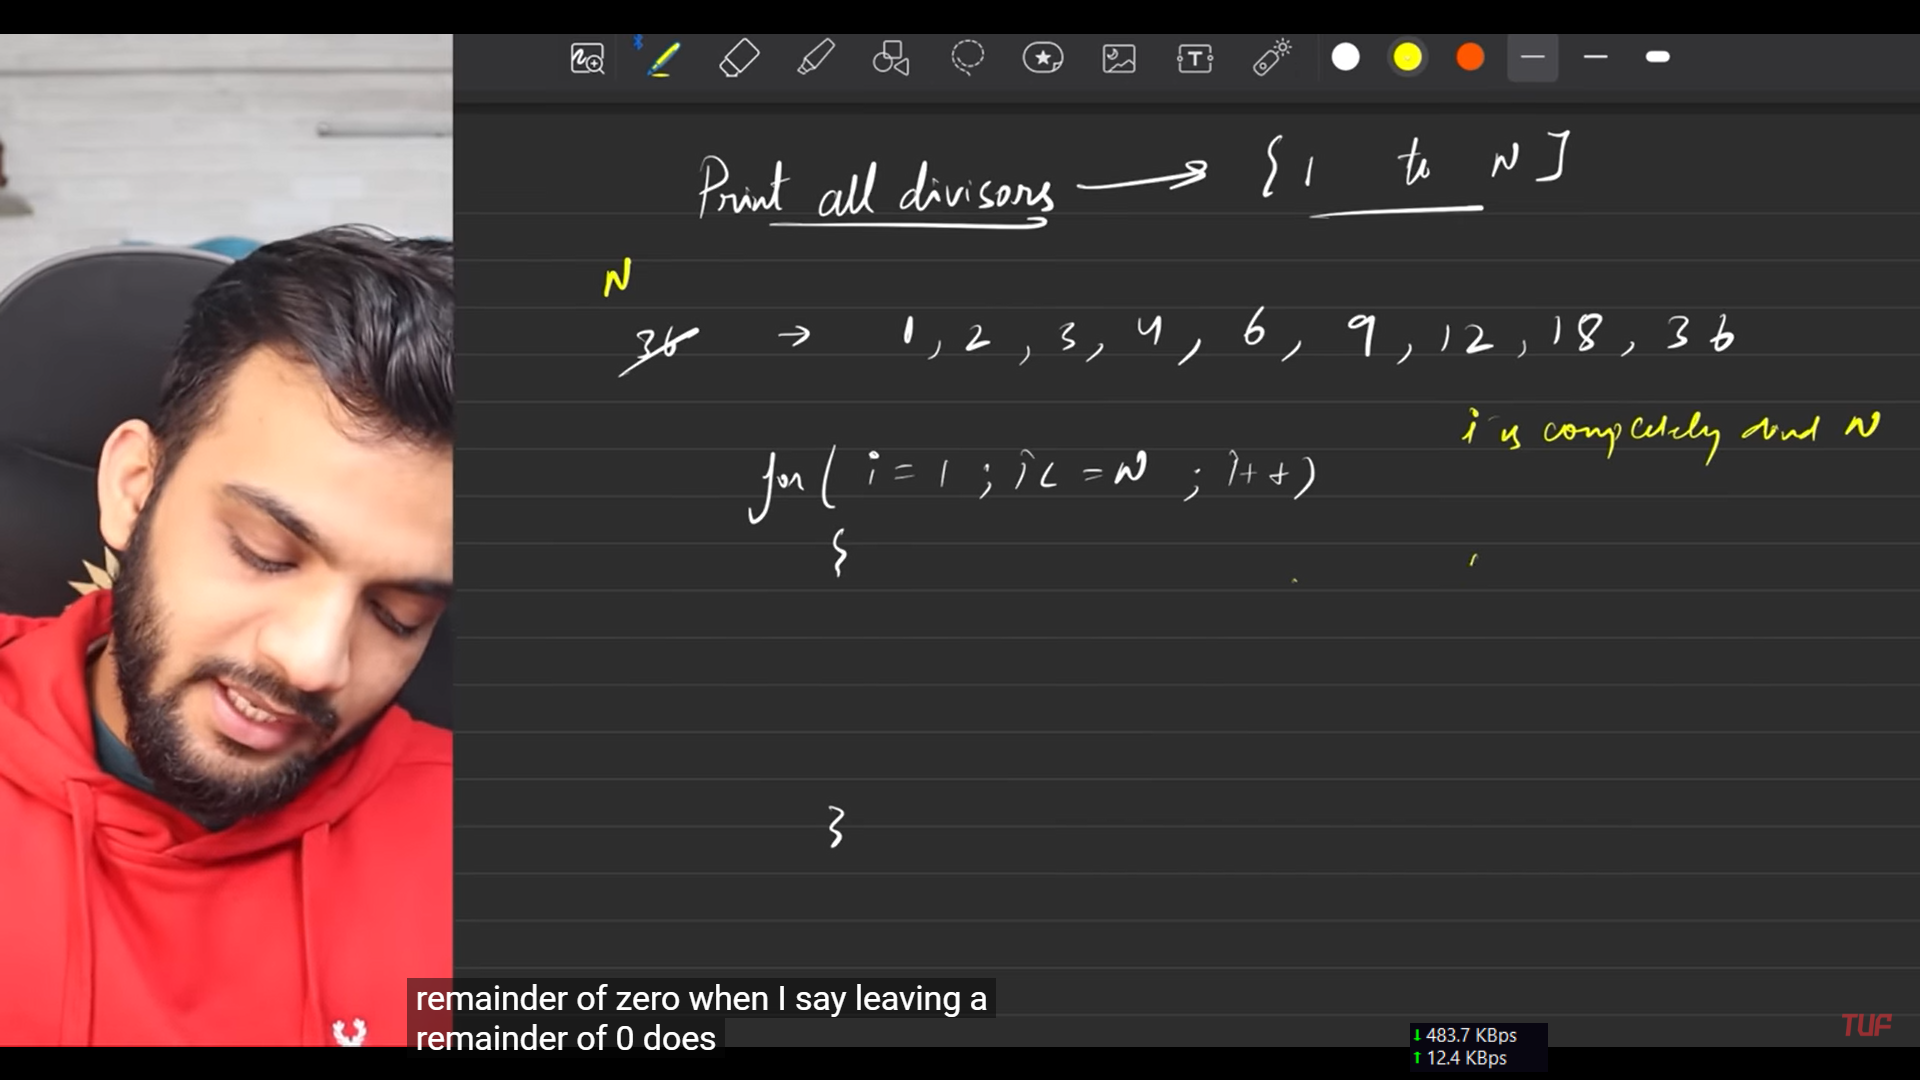 Print all divisors → {1 to N]
N
36 → 1, 2, 3, 4, 6, 9, 12, 18, 36
i is completely N
for( i = 1 ; i < = N ; i++)
{
}
remainder of zero when I say leaving a
remainder of 0 does
TUF
↓ 483.7 KBps
↑ 12.4 KBps